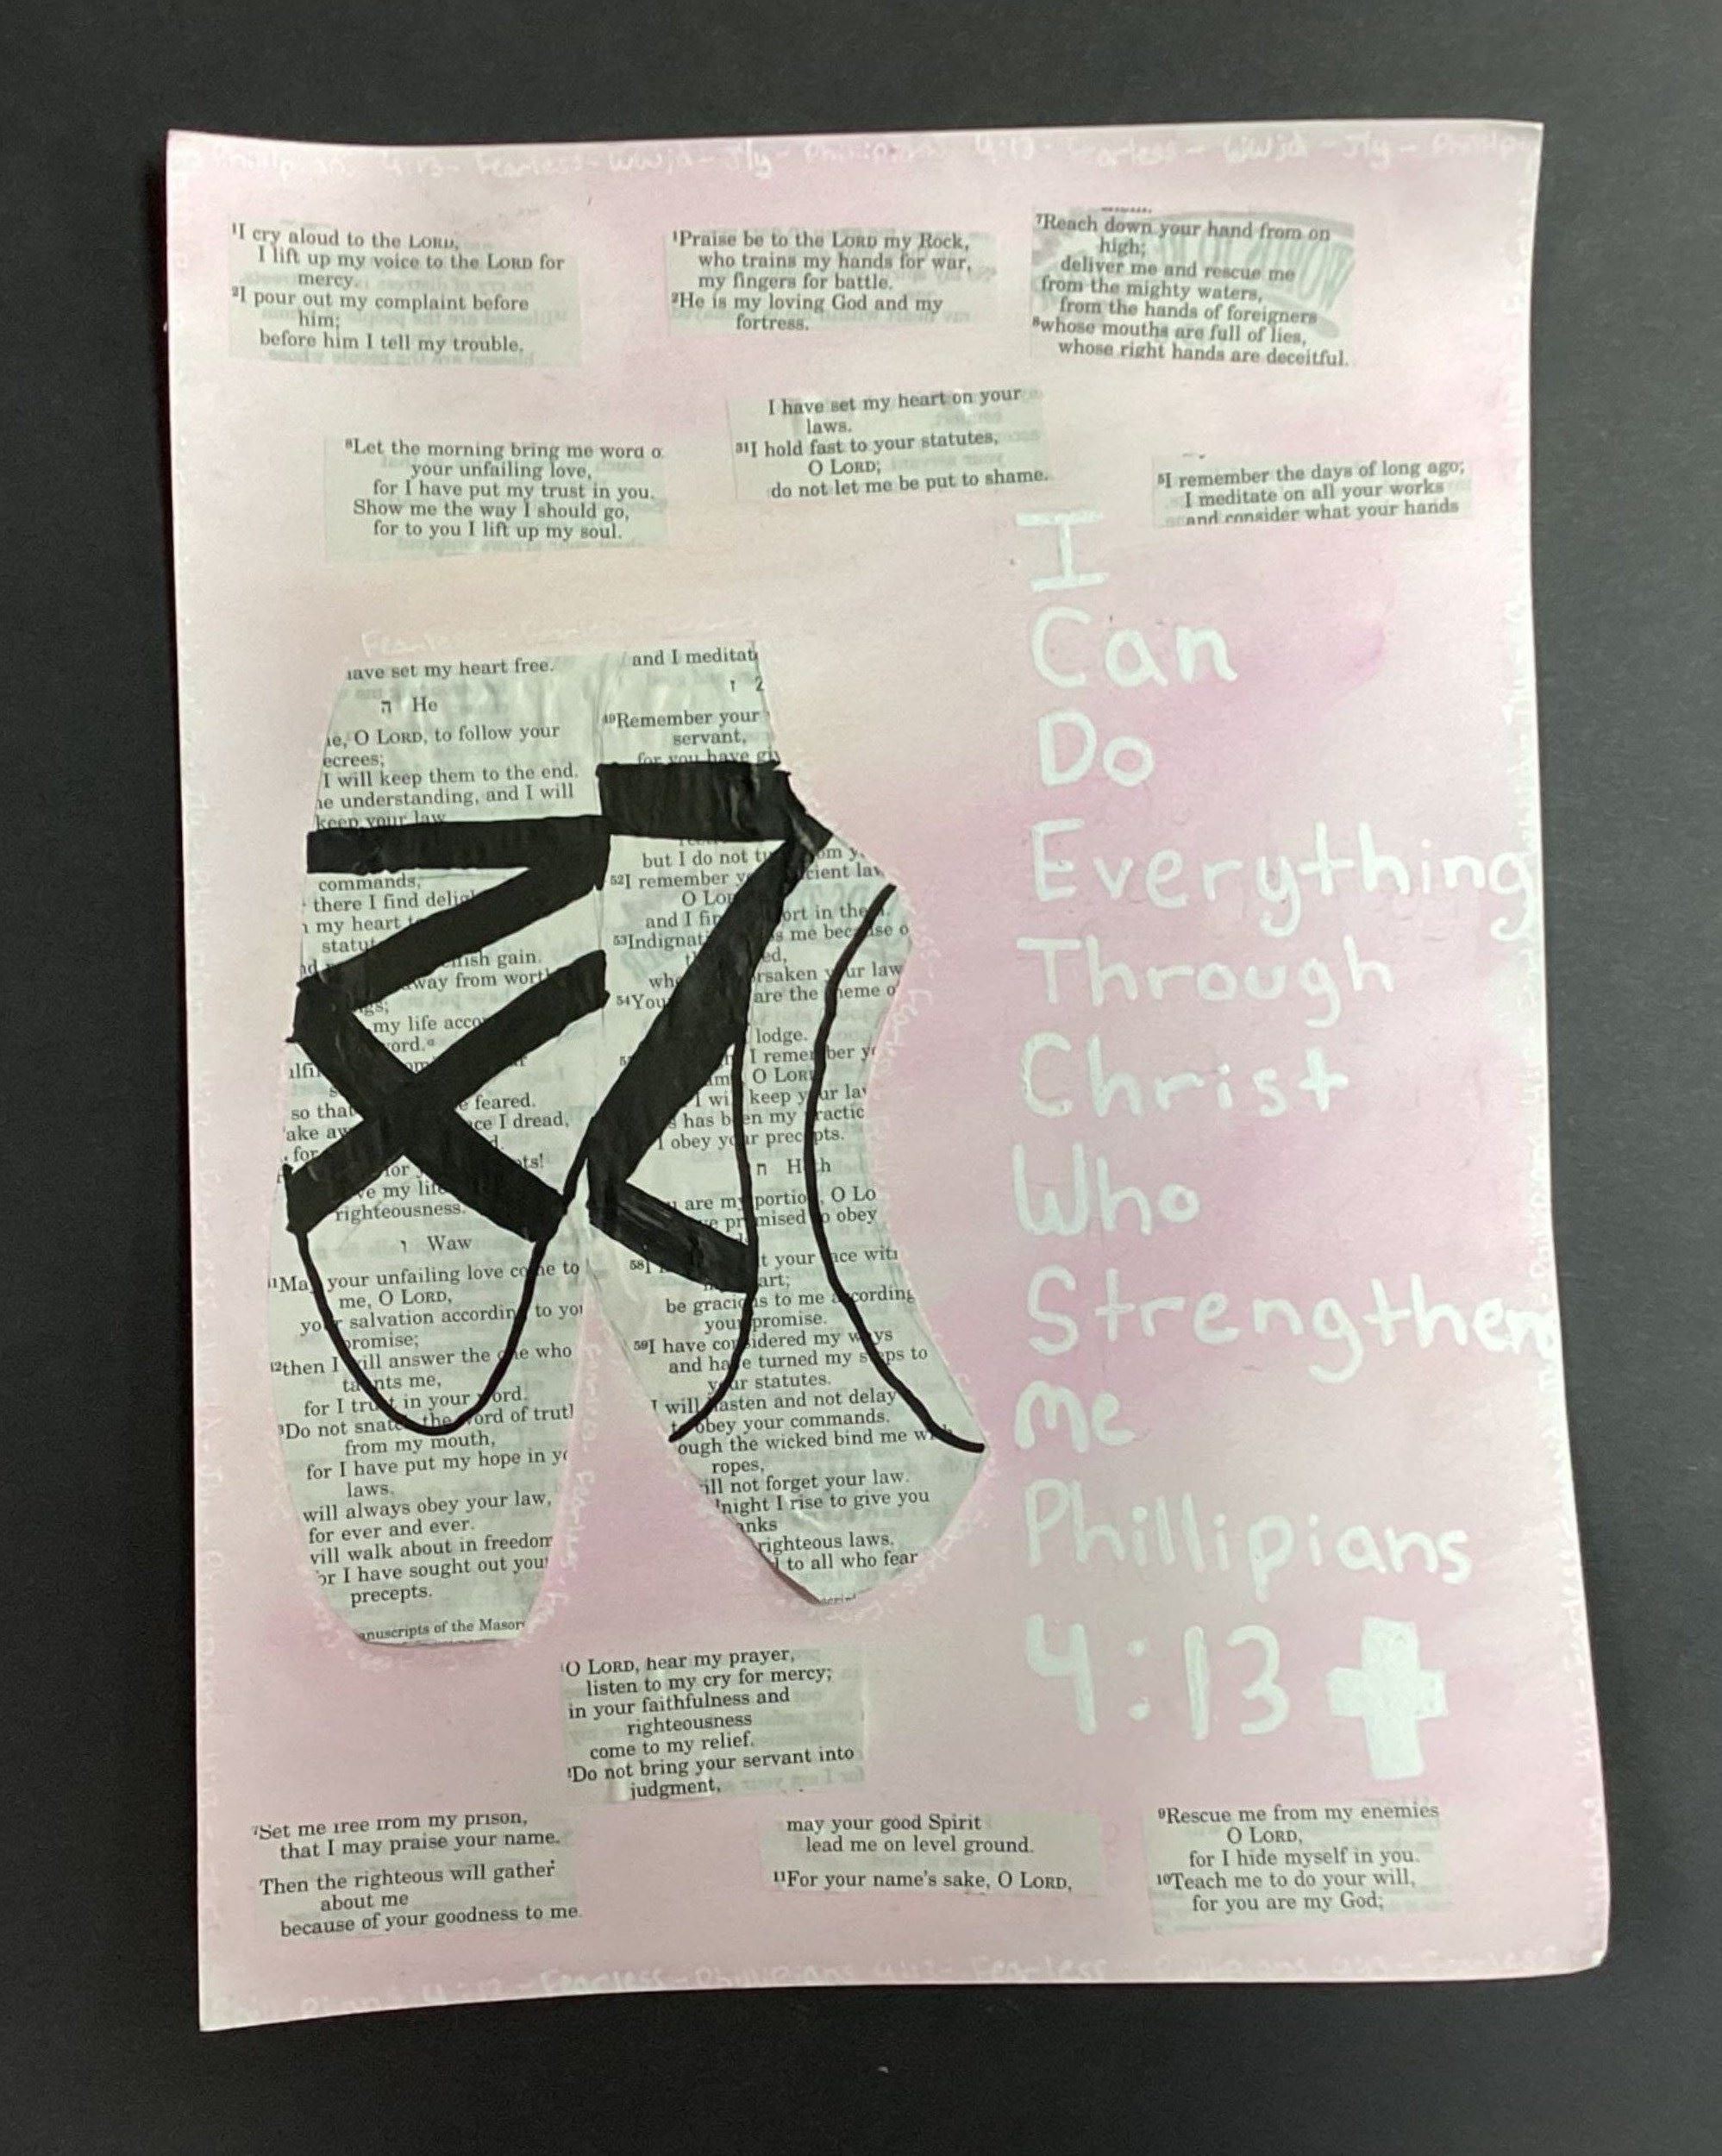 Phillipians 4:13 - Fearless - WWjd - Jly - Phillipians 4:13 - Fearless - WWjd - Jly - Phillip
¹I cry aloud to the LORD,
I lift up my voice to the LORD for
mercy.
²I pour out my complaint before
him;
before him I tell my trouble.
¹Praise be to the LORD my Rock,
who trains my hands for war,
my fingers for battle.
²He is my loving God and my
fortress.
⁷Reach down your hand from on
high;
deliver me and rescue me
from the mighty waters,
from the hands of foreigners
⁸whose mouths are full of lies,
whose right hands are deceitful.
⁸Let the morning bring me word o
your unfailing love,
for I have put my trust in you.
Show me the way I should go,
for to you I lift up my soul.
I have set my heart on your
laws.
³¹I hold fast to your statutes,
O LORD;
do not let me be put to shame.
⁵I remember the days of long ago;
I meditate on all your works
and consider what your hands
Fearless
ave set my heart free.
ה He
e, O LORD, to follow your
ecrees;
I will keep them to the end.
e understanding, and I will
keep your law
commands,
there I find delig
my heart
statut
ish gain.
way from wort
my life acco
ord.ᵃ
ulfi
so that
feared.
ake aw
ce I dread,
for
or
ts!
e my life
righteousness.
ו Waw
⁴¹May your unfailing love come to
me, O LORD,
your salvation according to you
promise;
⁴²then I will answer the one who
taunts me,
for I trust in your word.
³Do not snatch the word of trutl
from my mouth,
for I have put my hope in yo
laws.
will always obey your law,
for ever and ever.
vill walk about in freedom
or I have sought out you
precepts.
anuscripts of the Masor
and I meditat
ז
⁴⁹Remember your
servant,
for you have gi
but I do not tu om y
⁵²I remember y cient law
O Lor
and I fin ort in the
⁵³Indignat s me because o
ed,
wh rsaken your law
⁵⁴You are the theme o
lodge.
I remember y
O LOR
I wi keep your la
s has been my practic
I obey your precepts.
ח Heth
are my portion, O Lo
ve promised to obey
⁵⁸I t your face with
art;
be gracious to me according
your promise.
⁵⁹I have considered my ways
and have turned my steps to
your statutes.
I will hasten and not delay
to obey your commands.
ough the wicked bind me w
ropes,
ill not forget your law.
night I rise to give you
anks
righteous laws.
to all who fear
I
Can
Do
Everything
Through
Christ
Who
Strengthens
Me
Phillipians
4:13
O LORD, hear my prayer,
listen to my cry for mercy;
in your faithfulness and
righteousness
come to my relief.
Do not bring your servant into
judgment,
⁷Set me free from my prison,
that I may praise your name.
Then the righteous will gather
about me
because of your goodness to me.
may your good Spirit
lead me on level ground.
¹¹For your name's sake, O LORD,
⁹Rescue me from my enemies
O LORD,
for I hide myself in you.
¹⁰Teach me to do your will,
for you are my God;
Phillipians 4:13 - Fearless - Phillipians 4:13 - Fearless